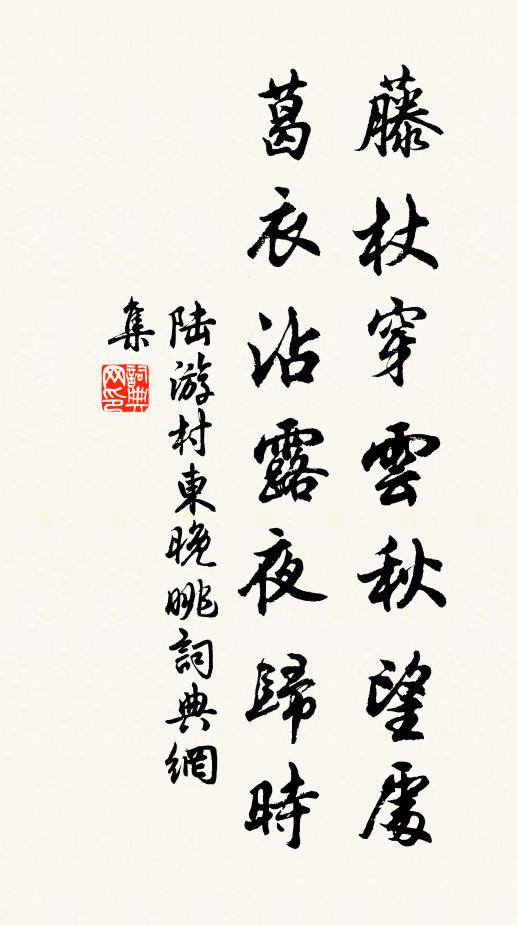 藤杖穿雲秋望處
葛衣沾露夜歸時
陸游村東晚眺詞典網
集
詞典網印